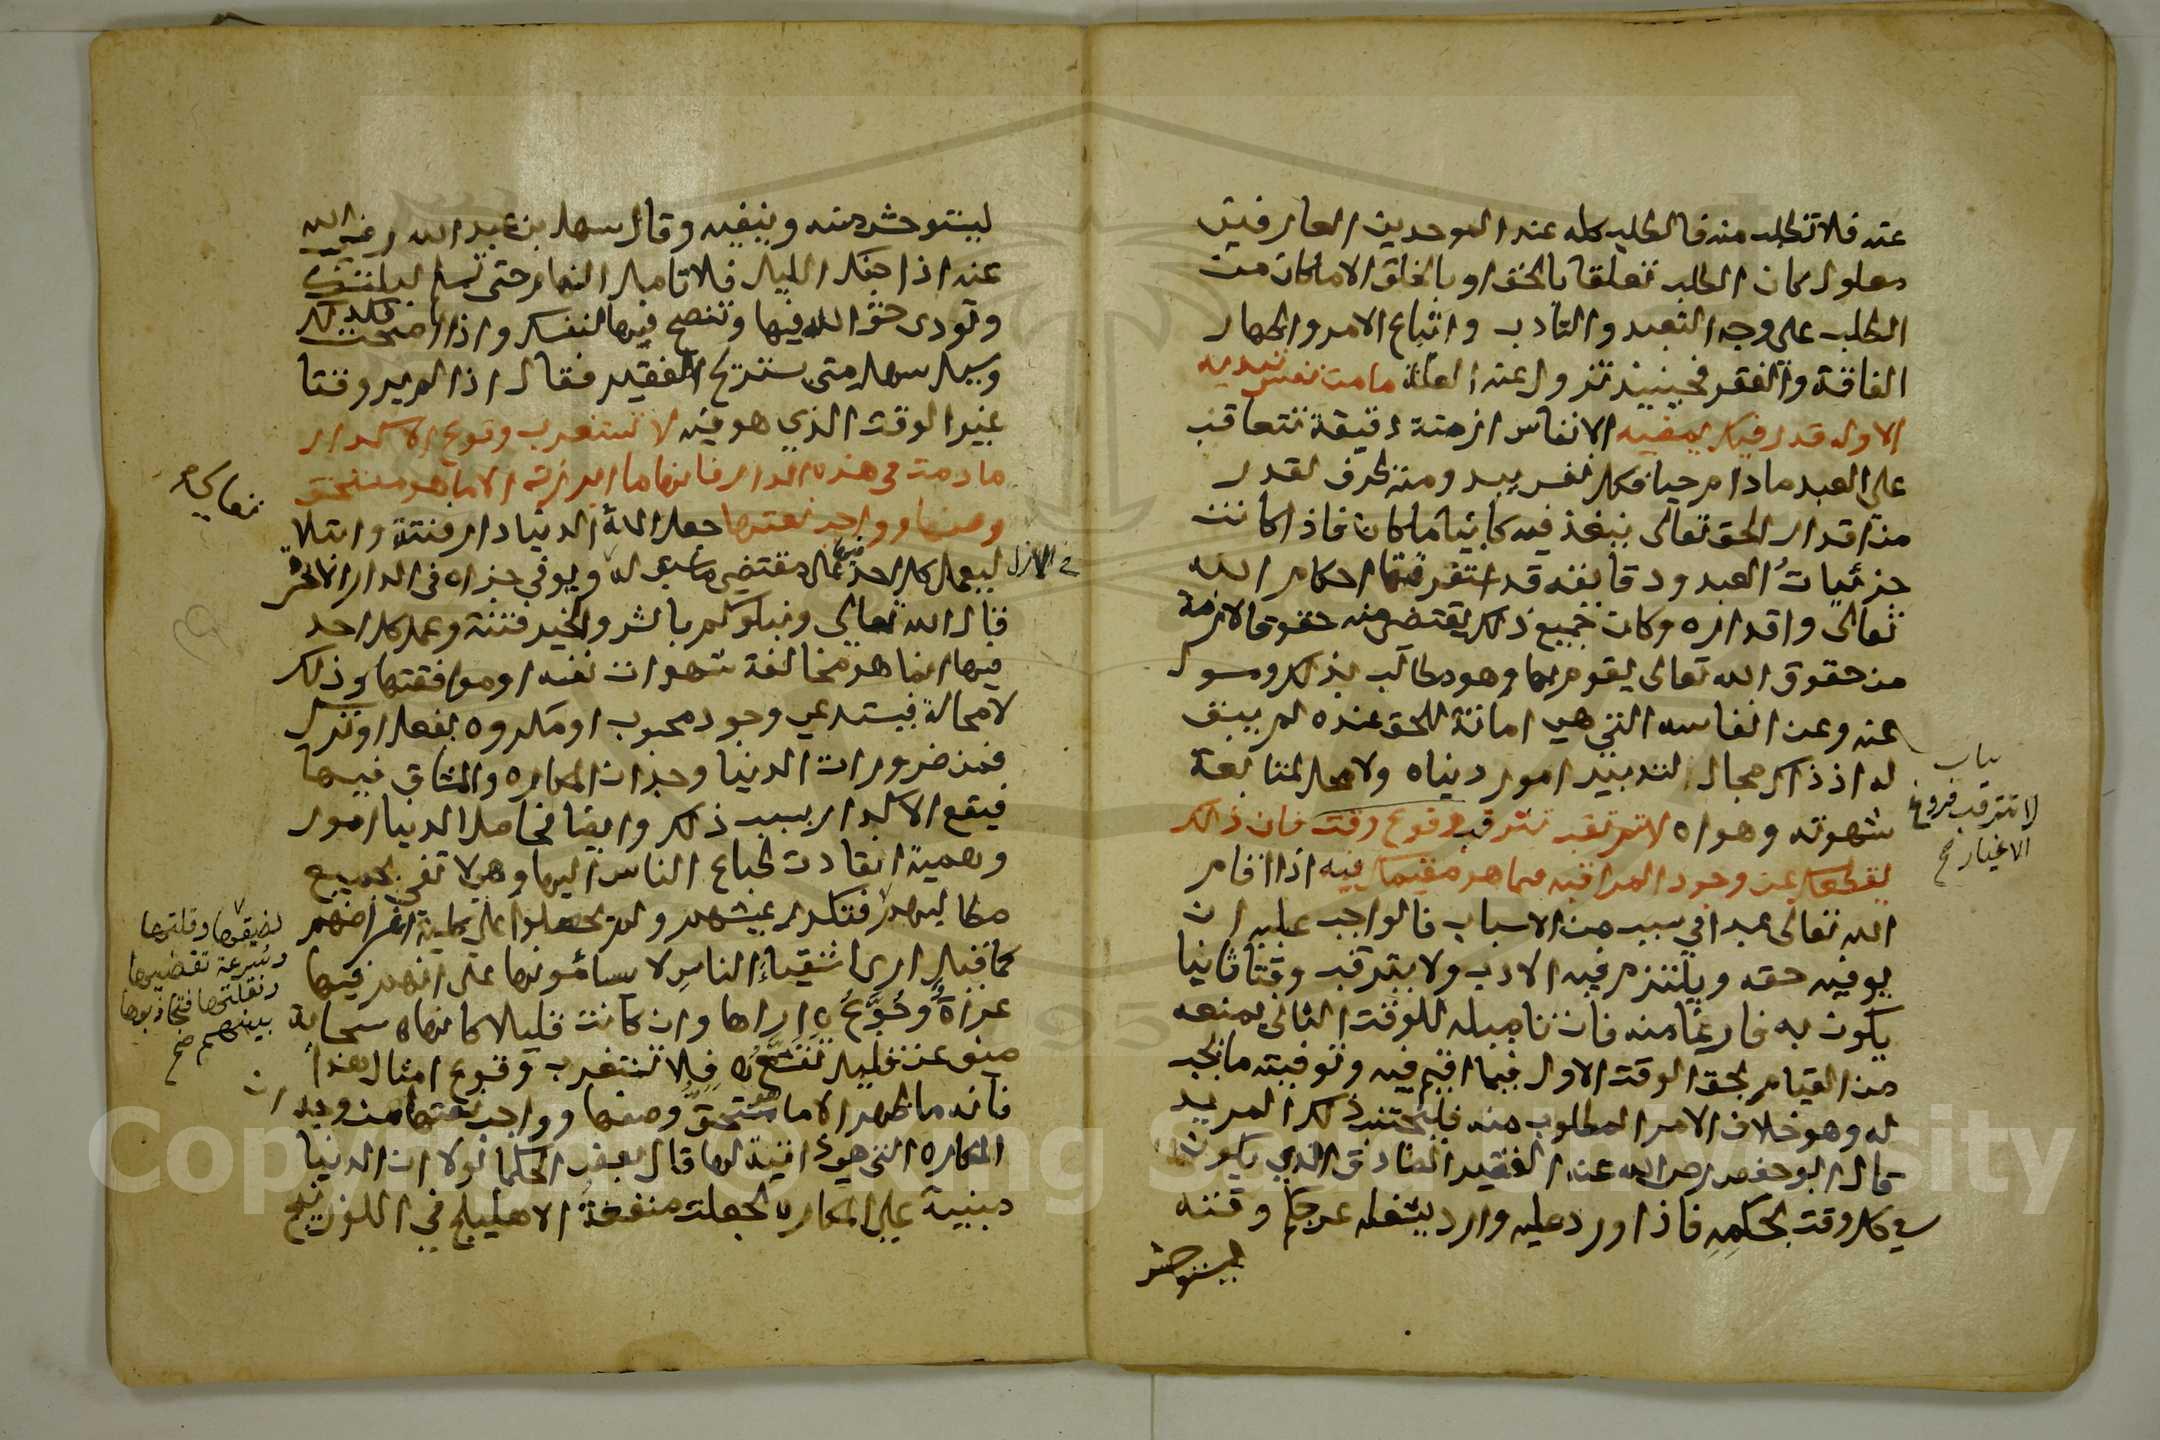 عنه فلا تطلب منه فالطلب كله عند الموحدين العارفين
معلول كان الطلب تعلقا بالحق او بالخلق الا ما كان من
الطلب على وجه التعبد والتادب واتباع الامر واظهار
الفاقة والفقر فحينيذ تزول عنه العلة ما من نفس تبديه
الا وله قدر فيك يمضيه الانفاس ازمنة دقيقة تتعاقب
على العبد ما دام حيا فكل نفس يبد ومنه ظرف لقدر
من اقدار الحق تعالى ينفذ فيه كاينا ما كان فاذا كانت
جزئيات العبد ودقايقه قد استغرقتها احكام الله
تعالى واقداره وكان جميع ذلك يقتضي منه حقوقا لازمة
من حقوق الله تعالى يقوم بها وهو مطالب بذلك ومسول
عنه وعن انفاسه التي هي امانة للحق عنده لم يبق
له اذ ذاك مجال لتدبير امور دنياه ولا محل لمتابعة
شهوته وهواه لا تترقب وقوع وقت فان ذالك
يقطعك عن وجود المراقبه فيما هو مقيمك فيه اذا اقام
الله تعالى عبدا في سبب من الاسباب فالواجب عليه ان
يوفيه حقه ويلتزم فيه الادب ولا يترقب وقتا ثانيا
يكون به فارغا منه فان تاميله للوقت الثاني يمنعه
من القيام بحق الوقت الاول فيما اقيم فيه وتوفيته ما يجب
له وهو خلاف الامر المطلوب منه فليجتنب ذلك المريد
قال ابو حفص رضي الله عنه الفقير الصادق الذي يكون
في كل وقت بحكمه فاذا ورد عليه وارد يشغله عن حكم وقته
ليستوحش
بياب
لا تترقب فروغ
الاغيار صح
ليستوحش منه وينفيه وقال سهل بن عبد الله رضي الله
عنه اذا جنك الليل فلا تامل النهار حتى تسلم ليلتك
وتودى حق الله فيها وتنصح فيها لنفسك واذا اصبحت فكذلك
وسيل سهل متى يستريح الفقير فقال اذا لم ير وقتا
غير الوقت الذي هو فيه لا تستغرب وقوع الاكدار
ما دمت في هذه الدار فانها ما ابرزت الا ما هو مستحق
وصفها وواجب نعتها جعل الله الدنيا دار فتنة وابتلا
ليعمل كل احد فيها بمقتضى ما سبق له ويوفي جزاه في الدار الاخرة
قال الله تعالى ونبلوكم بالشر والخير فتنة وعمل كل احد
فيها انما هو مخالفة شهوات نفسه او موافقتها وذلك
لا محالة فيستدعي وجود محبوب او مكروه بفعل او ترك
فمن ضرورات الدنيا وجدان المكاره والمشاق فيها
فيقع الاكدار بسبب ذلك وايضا فحاصل الدنيا امور
وهمية انقادت طباع الناس اليها وهي لا تفي بجميع
مطالبهم فتكدر عيشهم ولم يحصلوا على كلية اغراضهم
كما قيل ارى اشقياء الناس لا يسأمونها على انهم فيها
عراة وجوع اراها وان كانت قليلا كانها سحابة
صيف عن قليل تقشع فلا تستغرب وقوع امثال هذا
فانه ما ظهر الا ما هو مستحق وصفها وواجب نعتها من وجدان
المكاره التي هي ذاتية لها قال بعض الحكما لولا ان الدنيا
مبنية على المكاره لجعلت منفعة الاهليلج في اللوزينج
في الازل
لضيقها وقلتها
وسرعة تقضيها
ونقلتها فتجاذبوها
بينهم صح